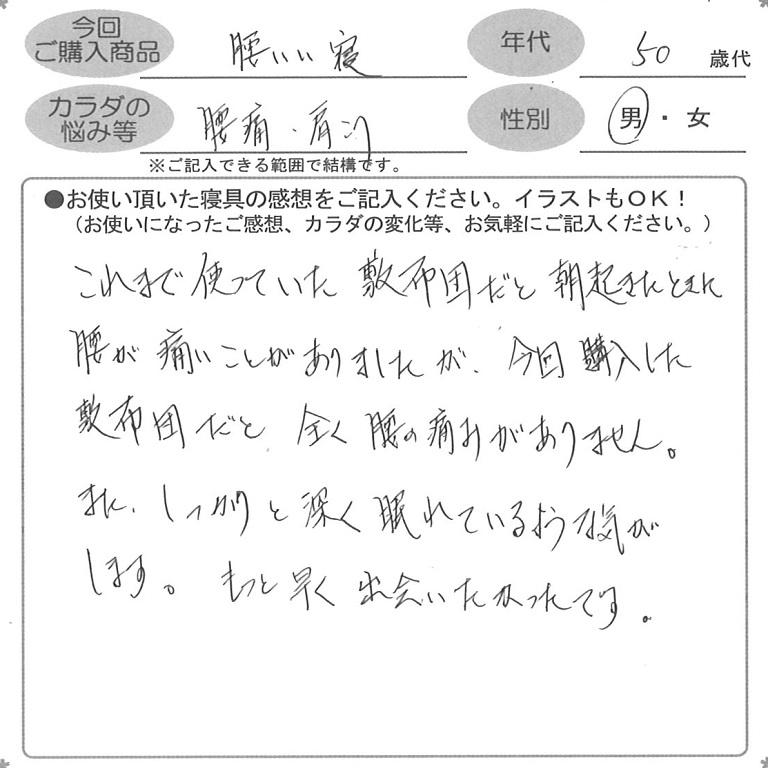 今回
ご購入商品
腰いい寝
年代
50 歳代
カラダの
悩み等
腰痛・肩こり
性別
男・女
※ご記入できる範囲で結構です。
●お使い頂いた寝具の感想をご記入ください。イラストもOK！
（お使いになったご感想、カラダの変化等、お気軽にご記入ください。）
これまで使っていた敷布団だと朝起きたときに
腰が痛いことがありましたが、今回購入した
敷布団だと全く腰の痛みがありません。
また、しっかりと深く眠れているような気が
します。もっと早く出会いたかったです。